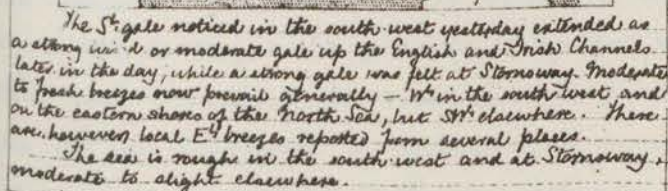 The S.ly gale noticed in the south west yesterday extended as
a strong wind or moderate gale up the English and Irish Channels
later in the day, while a strong gale was felt at Stornoway. Moderate
to fresh breezes now prevail generally – W.ly in the south west and
on the eastern shores of the North Sea, but SW.ly elsewhere. There
are, however, local E.ly breezes reported from several places.
The sea is rough in the south west and at Stornoway,
moderate to slight elsewhere.